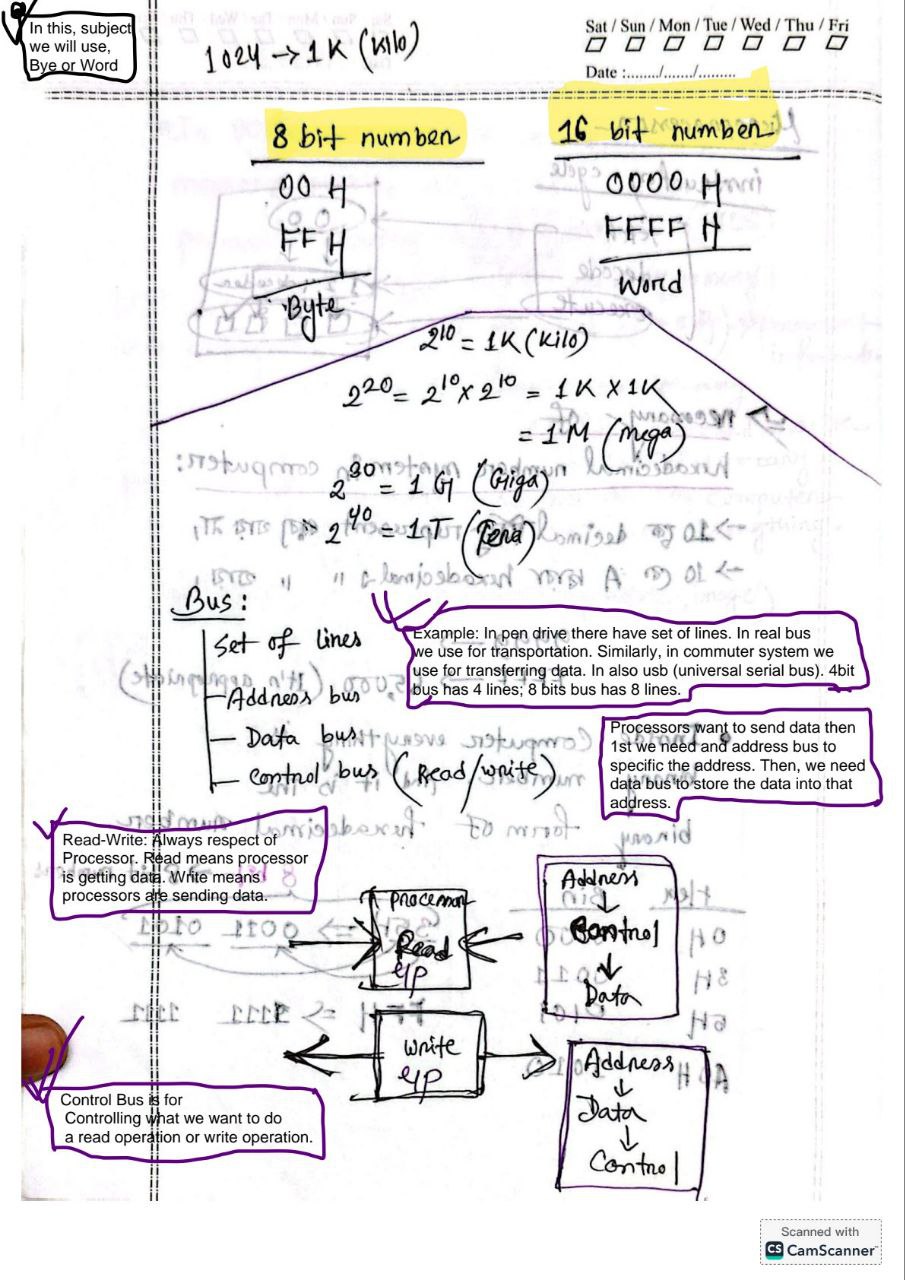 In this, subject
we will use,
Bye or Word
1024 → 1K (Kilo)
Sat / Sun / Mon / Tue / Wed / Thu / Fri
Date :......../......./.........
8 bit number
00 H
FF H
Byte
16 bit number
0000 H
FFFF H
Word
2^10 = 1K (Kilo)
2^20 = 2^10 x 2^10 = 1K X 1K
= 1M (Mega)
2^30 = 1 G (Giga)
2^40 = 1T (Tera)
Bus:
Set of lines
Address bus
Data bus
Control bus (Read/write)
Example: In pen drive there have set of lines. In real bus
we use for transportation. Similarly, in commuter system we
use for transferring data. In also usb (universal serial bus). 4bit
bus has 4 lines; 8 bits bus has 8 lines.
Processors want to send data then
1st we need and address bus to
specific the address. Then, we need
data bus to store the data into that
address.
Read-Write: Always respect of
Processor. Read means processor
is getting data. Write means
processors are sending data.
Processor
Read
Address
↓
Control
↓
Data
Write
Address
↓
Data
↓
Control
Control Bus is for
Controlling what we want to do
a read operation or write operation.
Scanned with
CS CamScanner